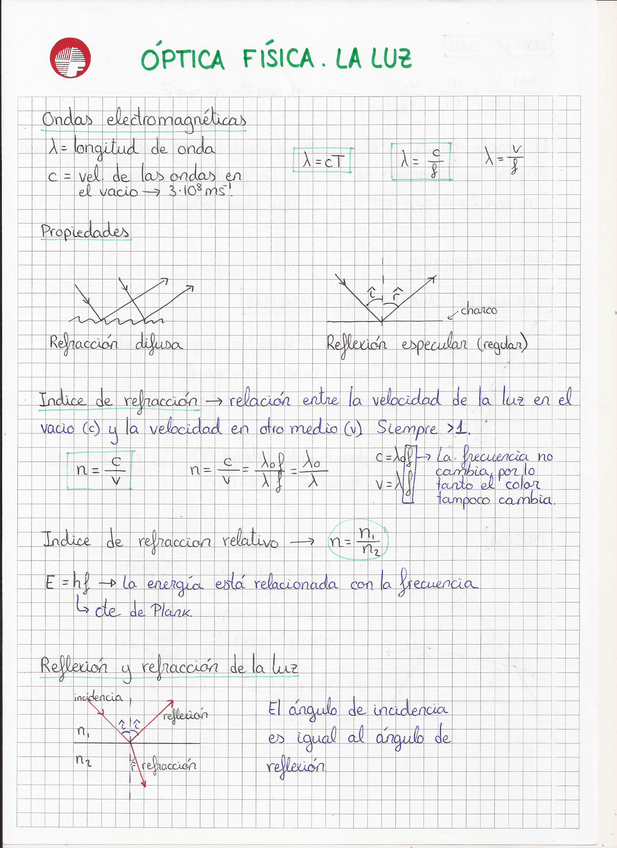 ÓPTICA FÍSICA. LA LUZ
Ondas electromagnéticas
λ = longitud de onda
c = vel. de las ondas en
el vacio → 3·10⁸ms⁻¹.
λ = cT
λ = c/f
λ = v/f
Propiedades
î r̂
charco
Refracción difusa
Reflexión especular (regular)
Indice de refracción → relación entre la velocidad de la luz en el
vacio (c) y la velocidad en otro medio (v). Siempre >1.
n = c/v
n = c/v = λ₀f/λf = λ₀/λ
c = λ₀f → La frecuencia no
v = λf
cambia, por lo
tanto el color
tampoco cambia.
Indice de refraccion relativo → n = n₁/n₂
E = hf → La energía está relacionada con la frecuencia
↳ cte de Plank.
Reflexión y refracción de la luz
incidencia
reflexión
n₁
n₂
refracción
El ángulo de incidencia
es igual al ángulo de
reflexión.